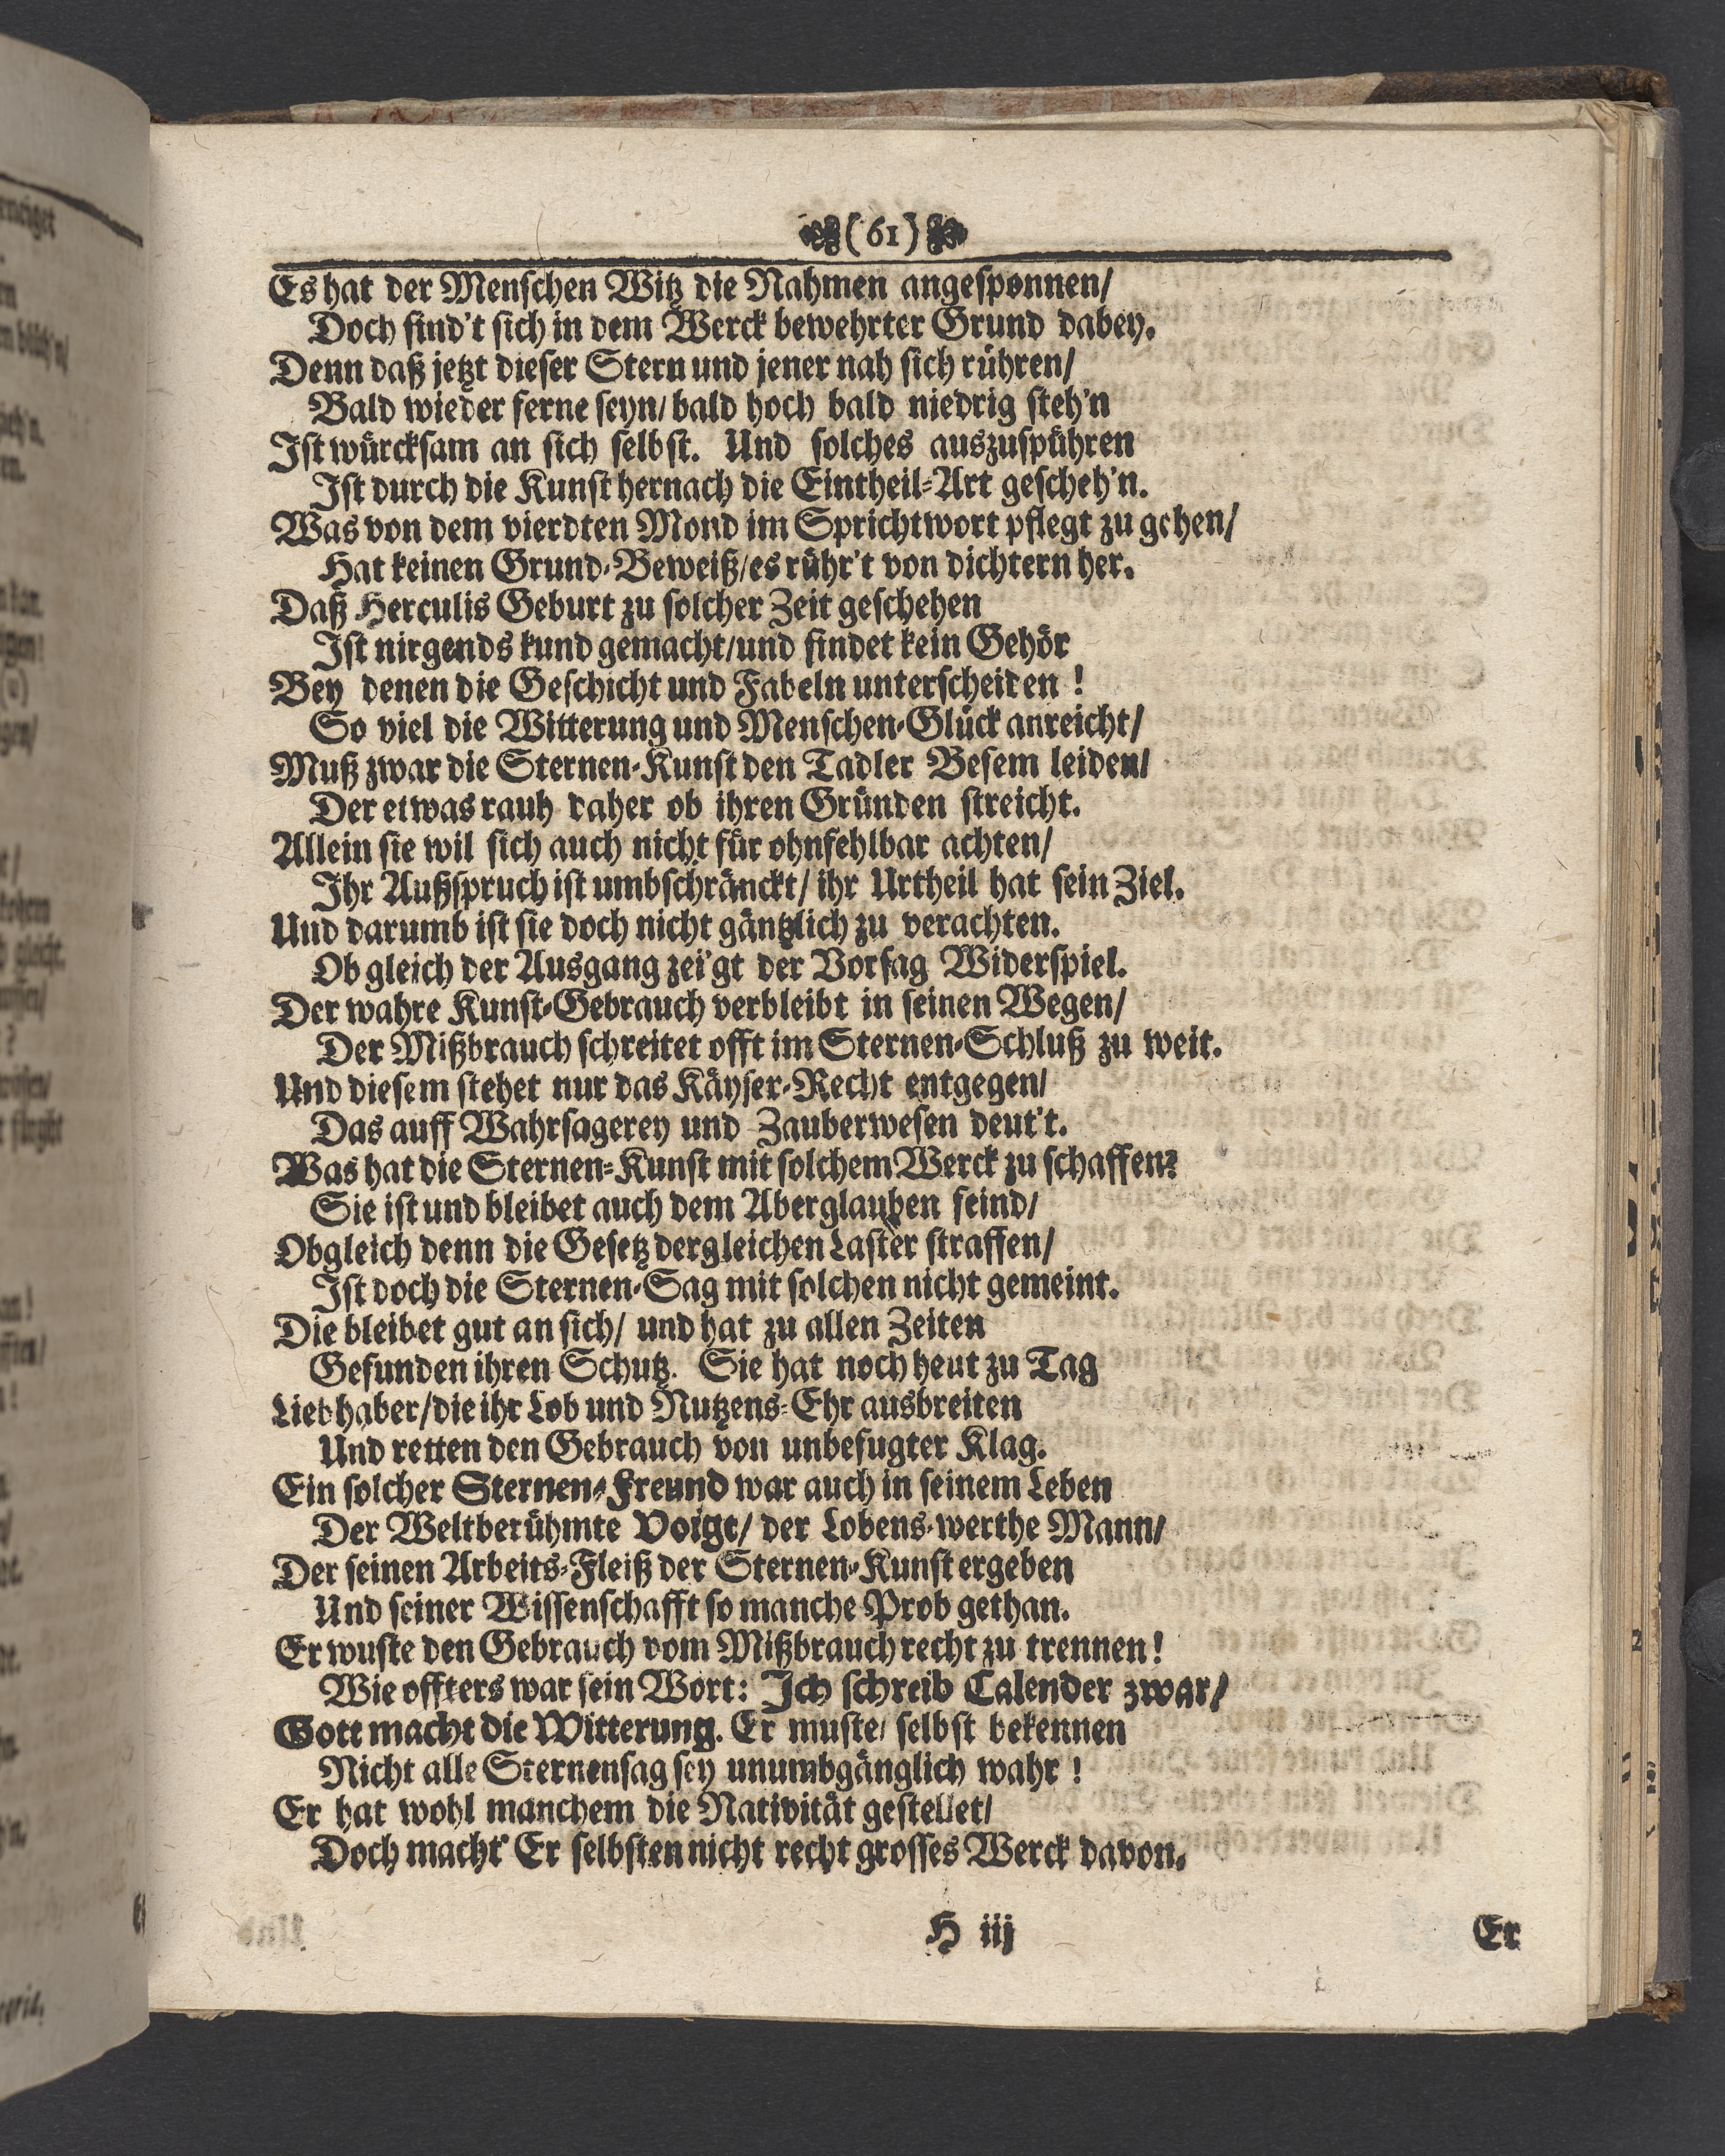 (61)
Es hat der Menschen Witz die Nahmen angesponnen/
Doch find't sich in dem Werck bewehrter Grund dabey.
Denn daß jetzt dieser Stern und jener nah sich rühren/
Bald wieder ferne seyn/ bald hoch bald niedrig steh'n
Ist würcksam an sich selbst. Und solches auszuspühren
Ist durch die Kunst hernach die Eintheil-Art gescheh'n.
Was von dem vierdten Mond im Sprichtwort pflegt zu gehen/
Hat keinen Grund-Beweiß/ es rühr't von dichtern her.
Daß Herculis Geburt zu solcher Zeit geschehen
Ist nirgends kund gemacht/ und findet kein Gehör
Bey denen die Geschicht und Fabeln unterscheiden!
So viel die Witterung und Menschen-Glück anreicht/
Muß zwar die Sternen-Kunst den Tadler Besem leiden/
Der etwas rauh daher ob ihren Gründen streicht.
Allein sie wil sich auch nicht für ohnfehlbar achten/
Ihr Außspruch ist umbschränckt/ ihr Urtheil hat sein Ziel.
Und darumb ist sie doch nicht gäntzlich zu verachten.
Ob gleich der Ausgang zei'gt der Vorsag Widerspiel.
Der wahre Kunst-Gebrauch verbleibt in seinen Wegen/
Der Mißbrauch schreitet offt im Sternen-Schluß zu weit.
Und diesem stehet nur das Käyser-Recht entgegen/
Das auff Wahrsagerey und Zauberwesen deut't.
Was hat die Sternen-Kunst mit solchem Werck zu schaffen?
Sie ist und bleibet auch dem Aberglauben feind/
Obgleich denn die Gesetz dergleichen Laster straffen/
Ist doch die Sternen-Sag mit solchen nicht gemeint.
Die bleibet gut an sich/ und hat zu allen Zeiten
Gefunden ihren Schutz. Sie hat noch heut zu Tag
Liebhaber/ die ihr Lob und Nutzens-Ehr ausbreiten
Und retten den Gebrauch von unbefugter Klag.
Ein solcher Sternen-Freund war auch in seinem Leben
Der Weltberühmte Voigt/ der Lobens-werthe Mann/
Der seinen Arbeits-Fleiß der Sternen-Kunst ergeben
Und seiner Wissenschafft so manche Prob gethan.
Er wuste den Gebrauch vom Mißbrauch recht zu trennen!
Wie offters war sein Wort: Ich schreib Calender zwar/
Gott macht die Witterung. Er muste/ selbst bekennen
Nicht alle Sternensag sey unumbgänglich wahr!
Er hat wohl manchem die Nativität gestellet/
Doch macht' Er selbsten nicht recht grosses Werck davon.
H iij
Er